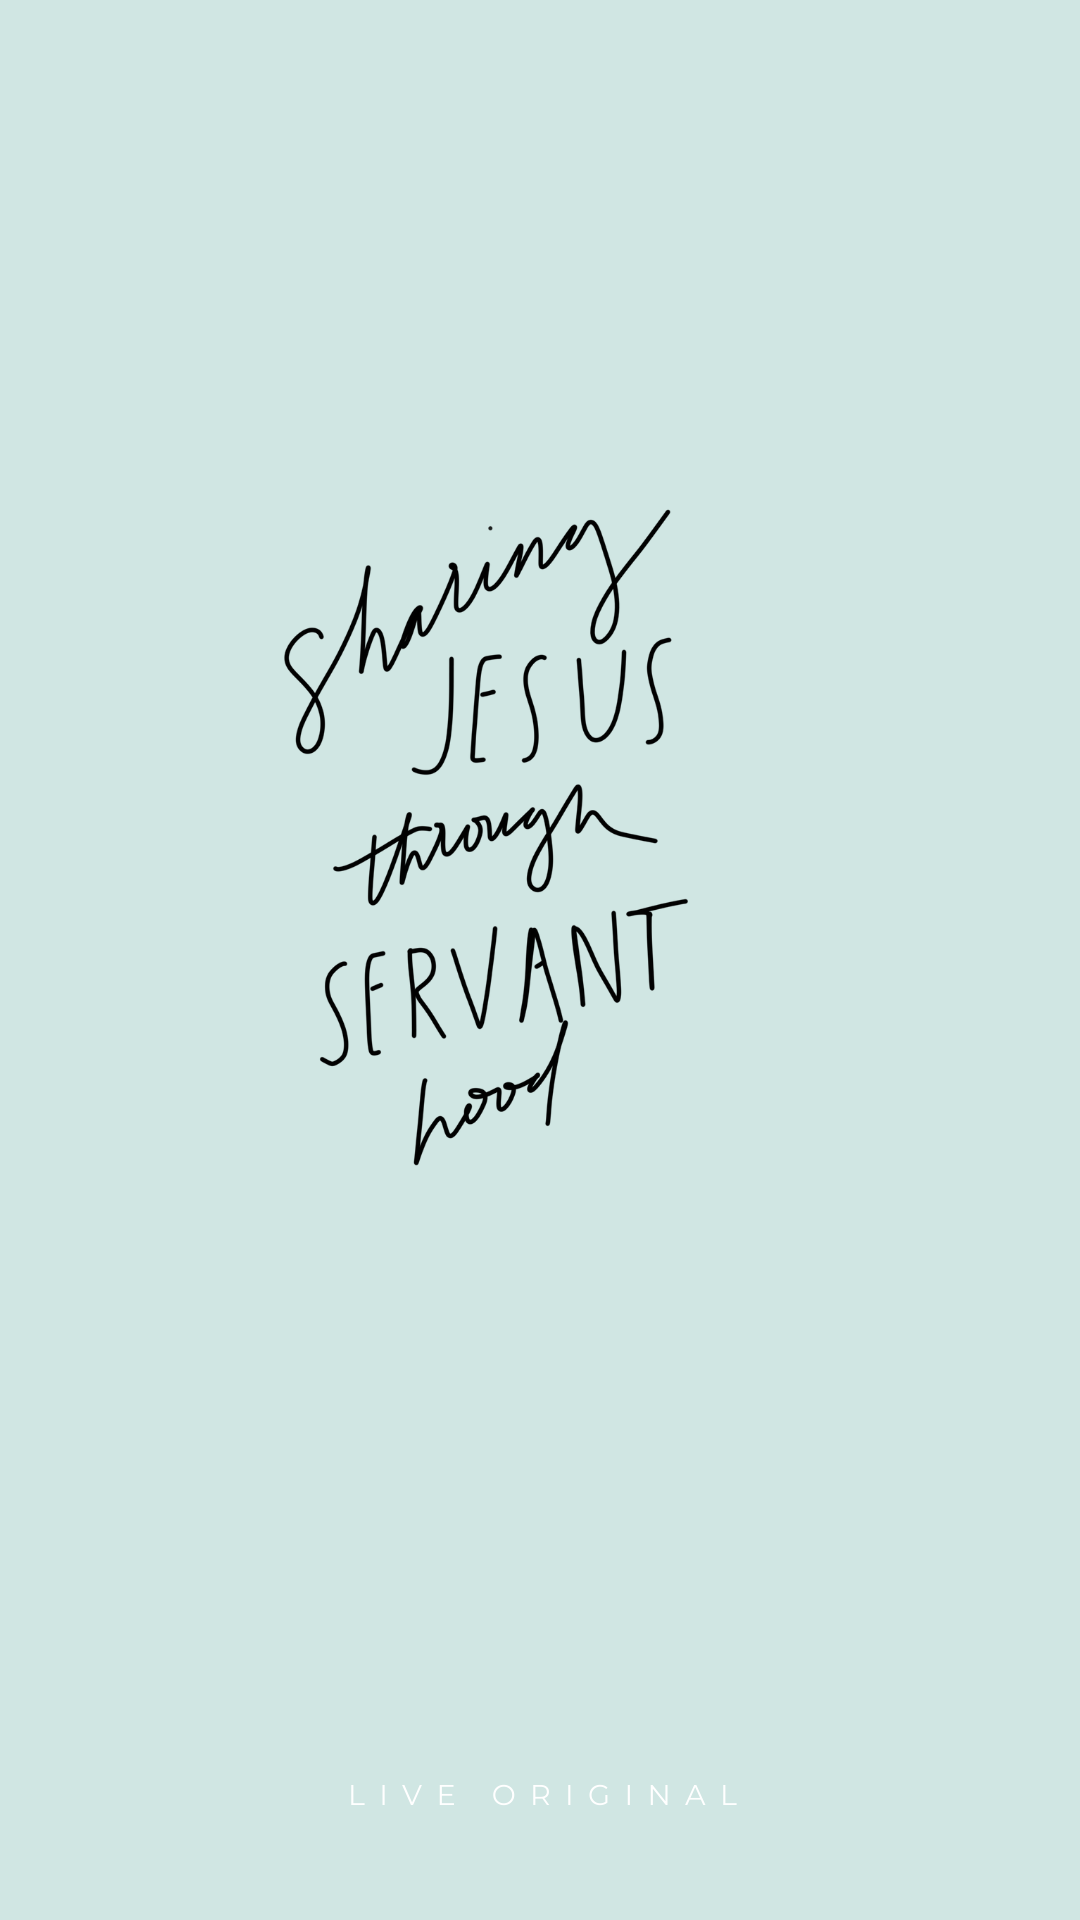 sharing
JESUS
through
SERVANT
hood
LIVE ORIGINAL